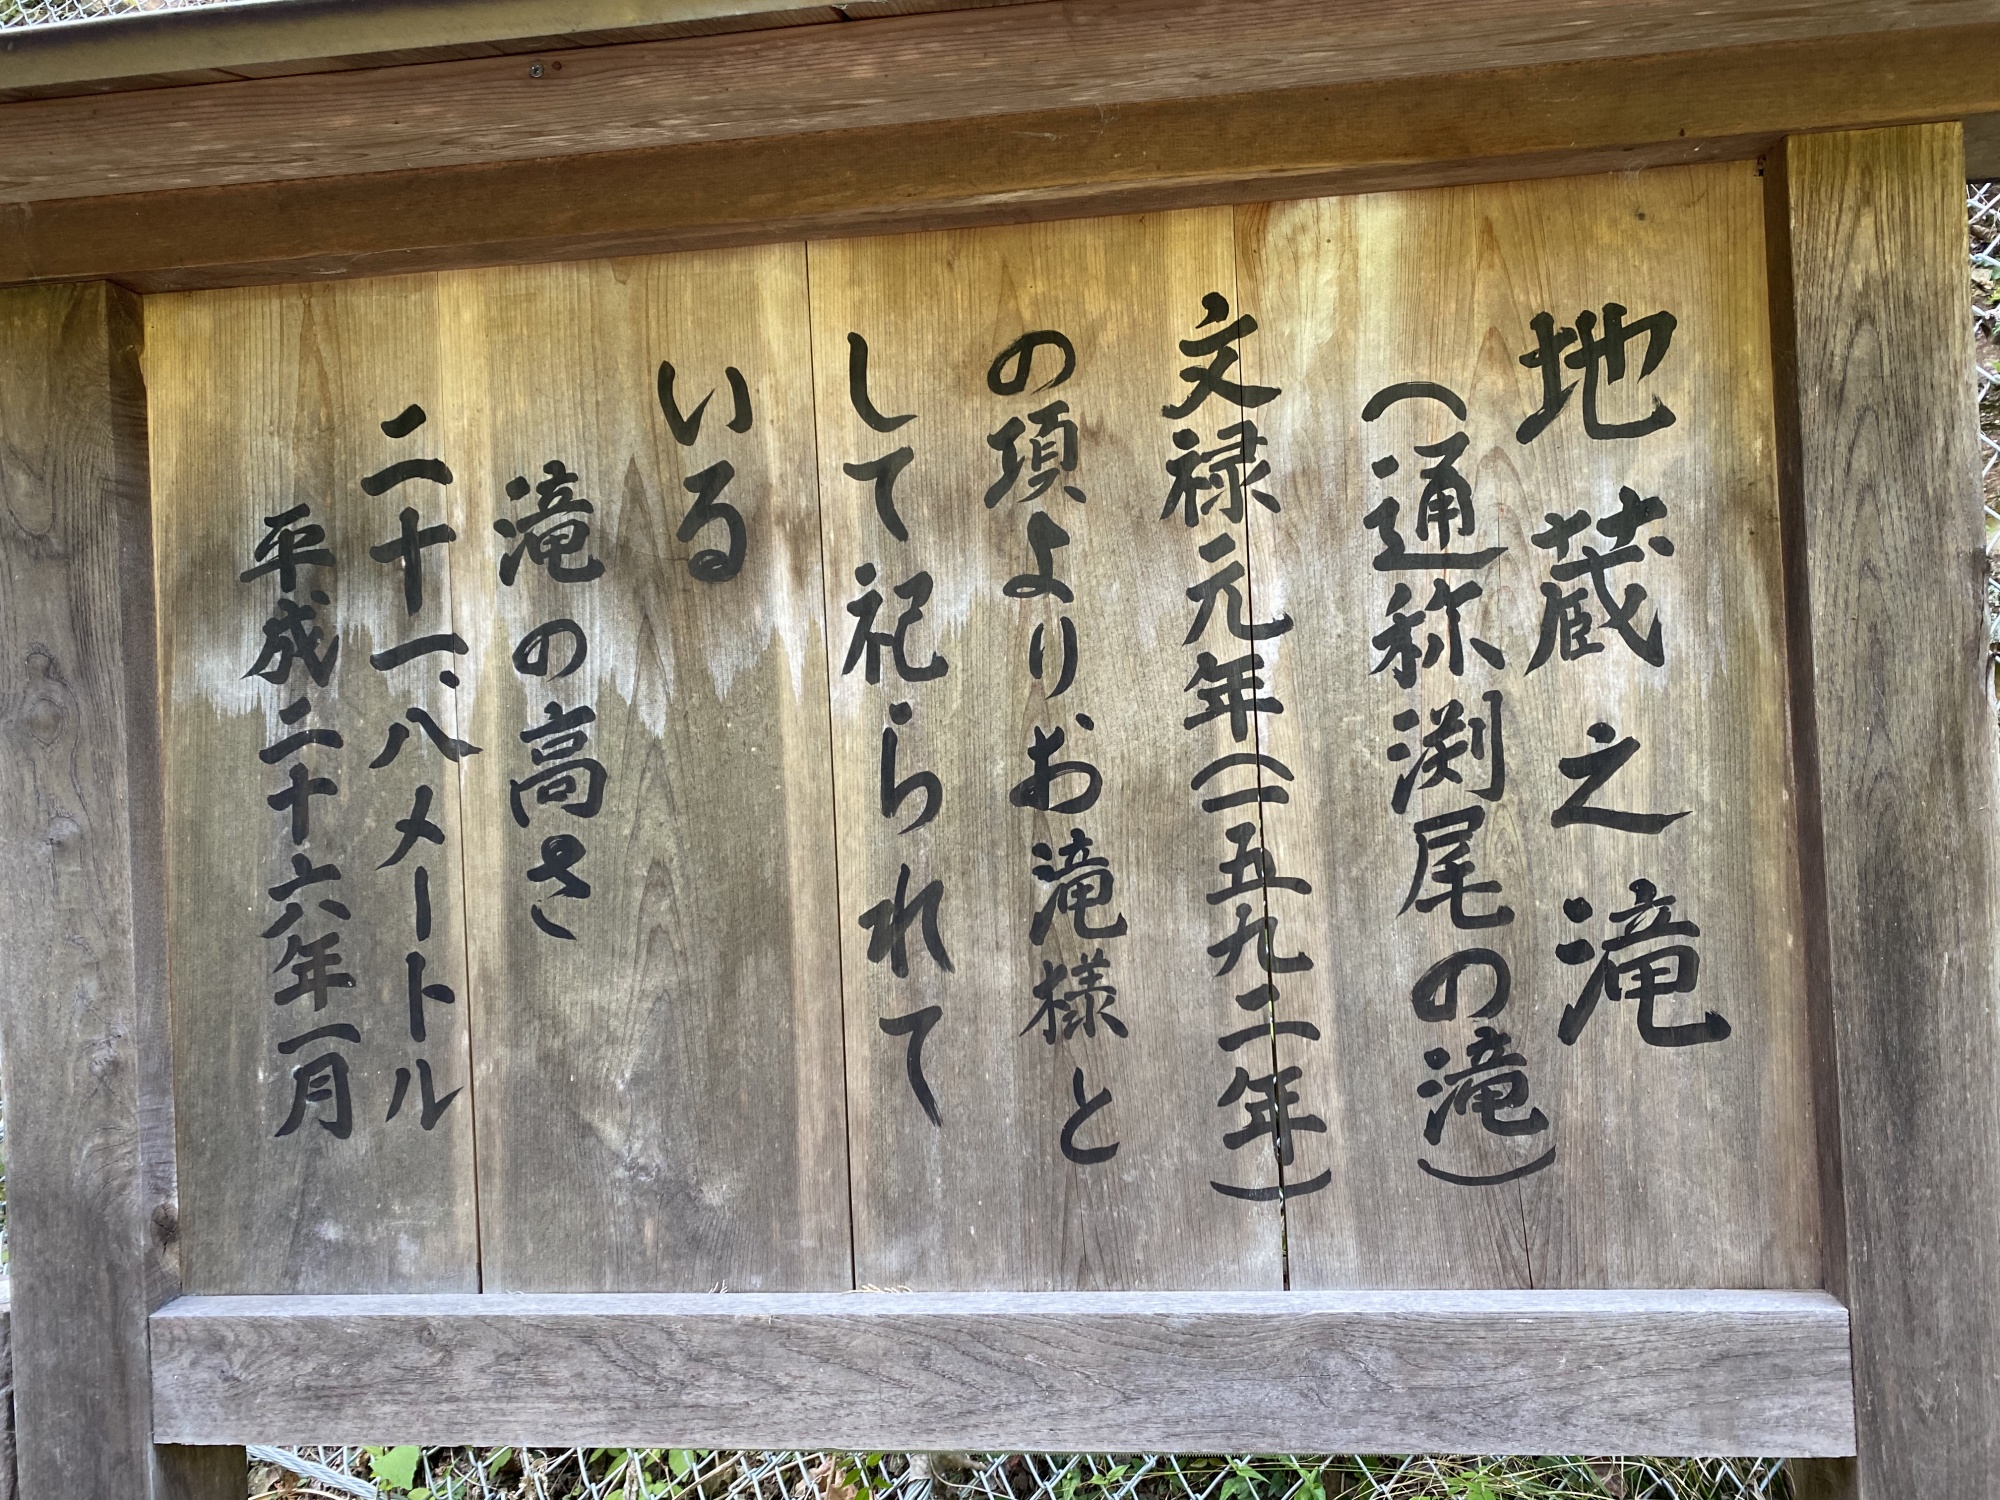 地蔵之滝
（通称渕尾の滝）
文禄元年（一五九二年）
の項よりお滝様と
して祀られて
いる
滝の高さ
二十一、八メートル
平成二十六年一月